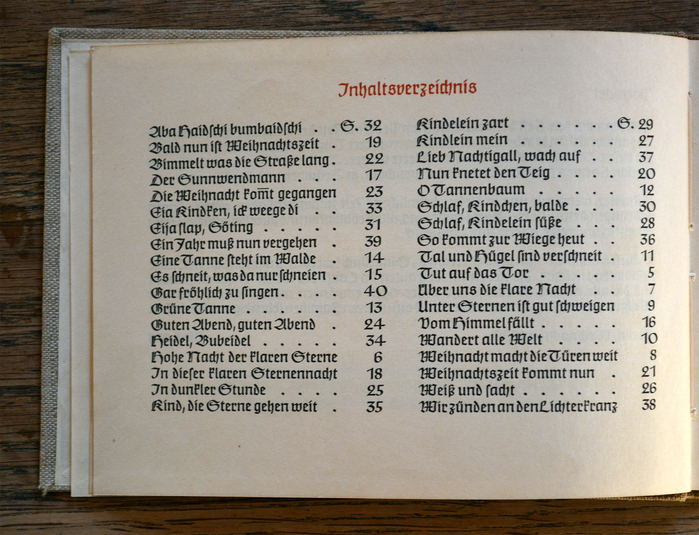 Inhaltsverzeichnis
Aba Haidschi bumbaidschi . . S. 32
Bald nun ist Weihnachtszeit . 19
Bimmelt was die Straße lang . 22
Der Sunnwendmann . . . . 17
Die Weihnacht kom̄t gegangen 23
Eia Kindken, ick weege di . . 33
Eija slap, Söting . . . . . 31
Ein Jahr muß nun vergehen . 39
Eine Tanne steht im Walde . 14
Es schneit, was da nur schneien . 15
Gar fröhlich zu singen . . . . 40
Grüne Tanne . . . . . . 13
Guten Abend, guten Abend . 24
Heidel, Bubeidel . . . . . 34
Hohe Nacht der klaren Sterne 6
In dieser klaren Sternennacht 18
In dunkler Stunde . . . . 25
Kind, die Sterne gehen weit . 35
Kindelein zart . . . . . . S. 29
Kindlein mein . . . . . . 27
Lieb Nachtigall, wach auf . . 37
Nun knetet den Teig . . . . 20
O Tannenbaum . . . . . 12
Schlaf, Kindchen, balde . . . 30
Schlaf, Kindelein süße . . . 28
So kommt zur Wiege heut . . 36
Tal und Hügel sind verschneit . 11
Tut auf das Tor . . . . . 5
Über uns die klare Nacht . . 7
Unter Sternen ist gut schweigen 9
Vom Himmel fällt . . . . . 16
Wandert alle Welt . . . . 10
Weihnacht macht die Türen weit 8
Weihnachtszeit kommt nun . 21
Weiß und sacht . . . . . 26
Wir zünden an den Lichterkranz 38